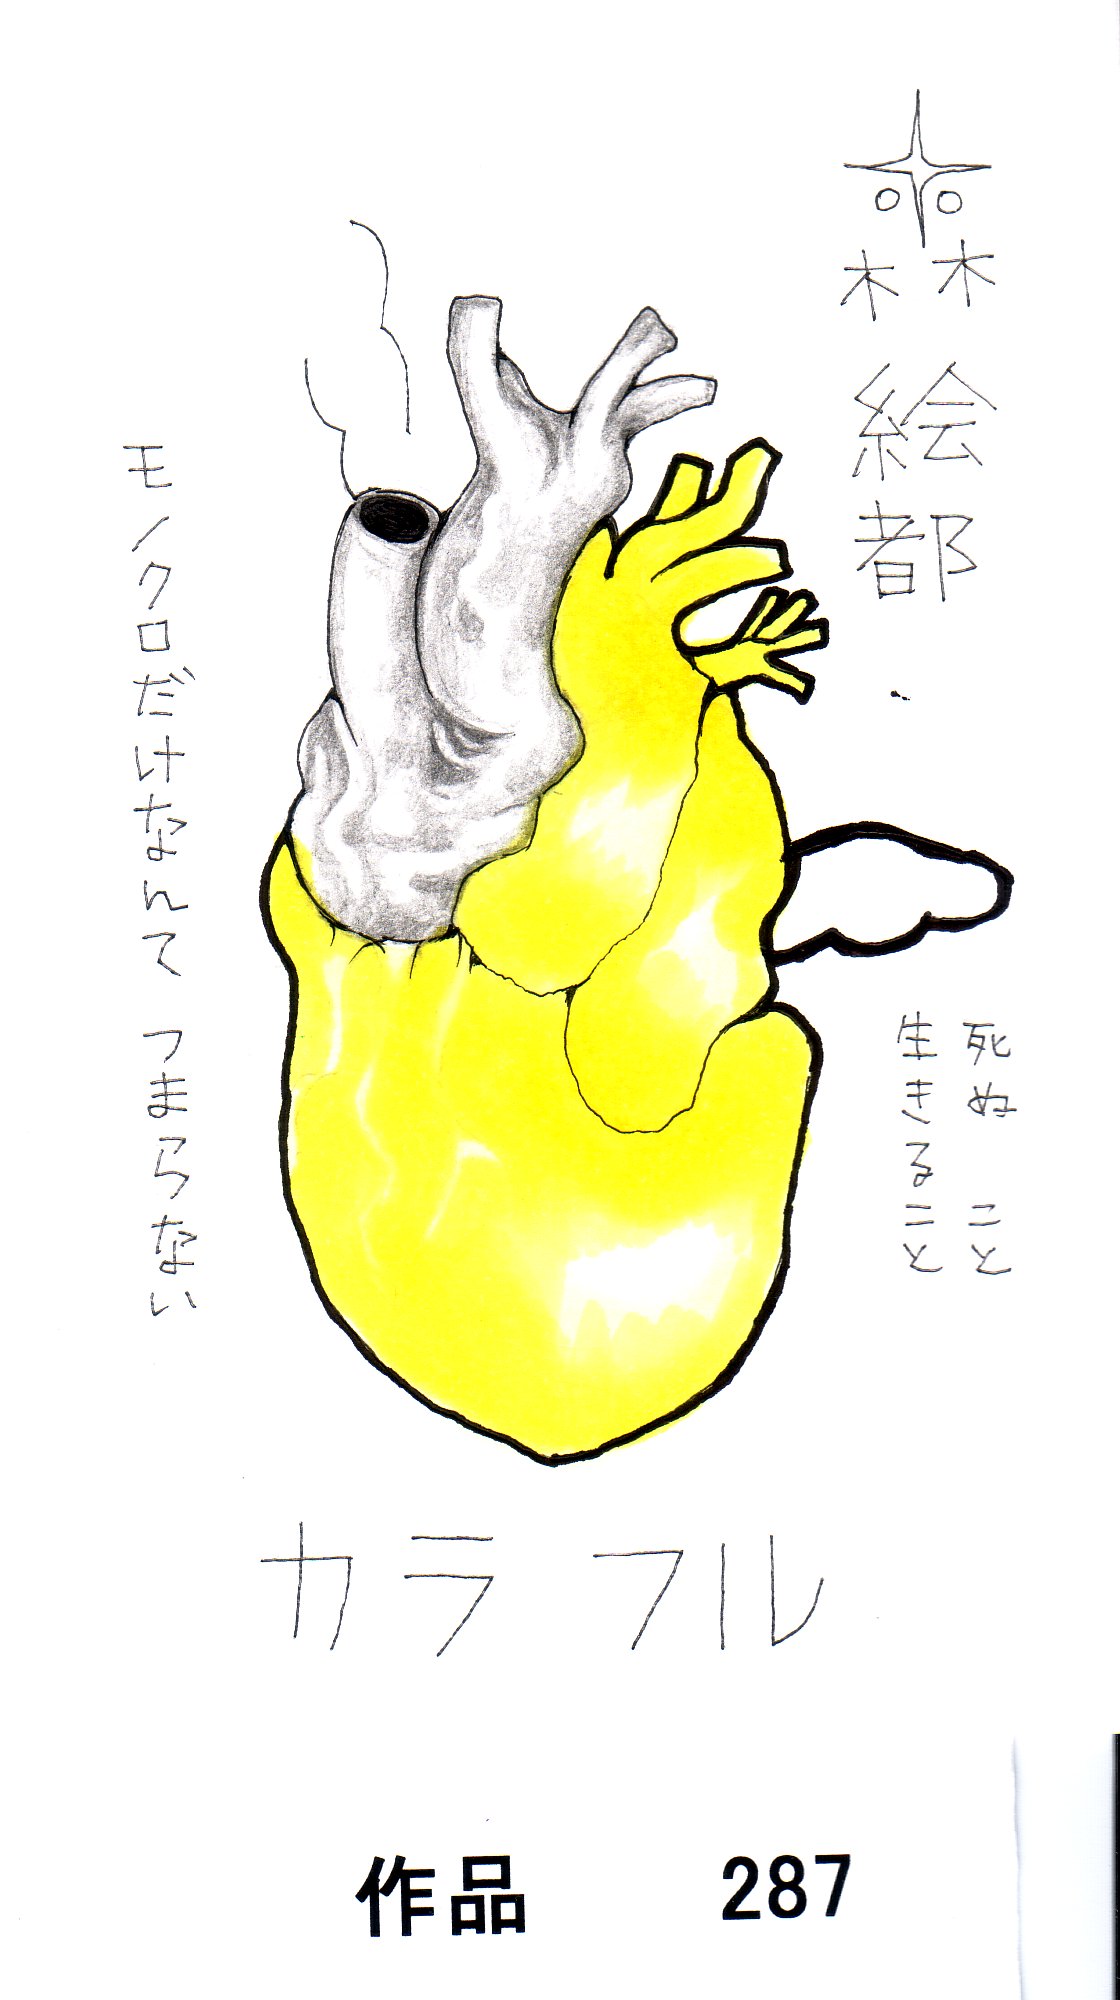 森絵都
死ぬ こと
生きること
モノクロだけなんて つまらない
カラフル
作品 287